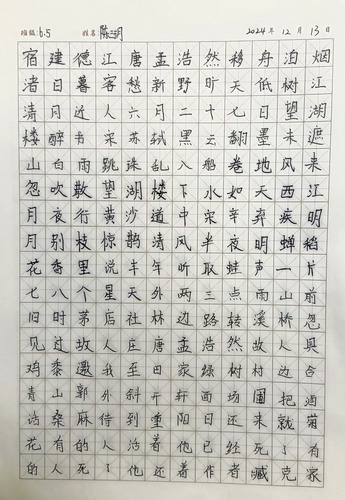 班级:6.5 姓名 陈玥 2024年12月13日
宿建德江唐孟浩然移舟泊烟
渚日暮客愁新野旷天低树江
清月近人六月二十七日望湖
楼醉书宋苏轼黑云翻墨未遮
山白雨跳珠乱入船卷地风来
忽吹散望湖楼下水如天西江
月夜行黄沙道中宋辛弃疾明
月别枝惊鹊清风半夜鸣蝉稻
花香里说丰年听取蛙声一片
七八个星天外两三点雨山前
旧时茅店社林边路转溪桥忽
见过故人庄唐孟浩然故人具
鸡黍邀我至田家绿树村边合
青山郭外斜开轩面场圃把酒
话桑麻待到重阳日还来就菊
花有的人活着他已经死了有
的人死了他还活着作者臧克家